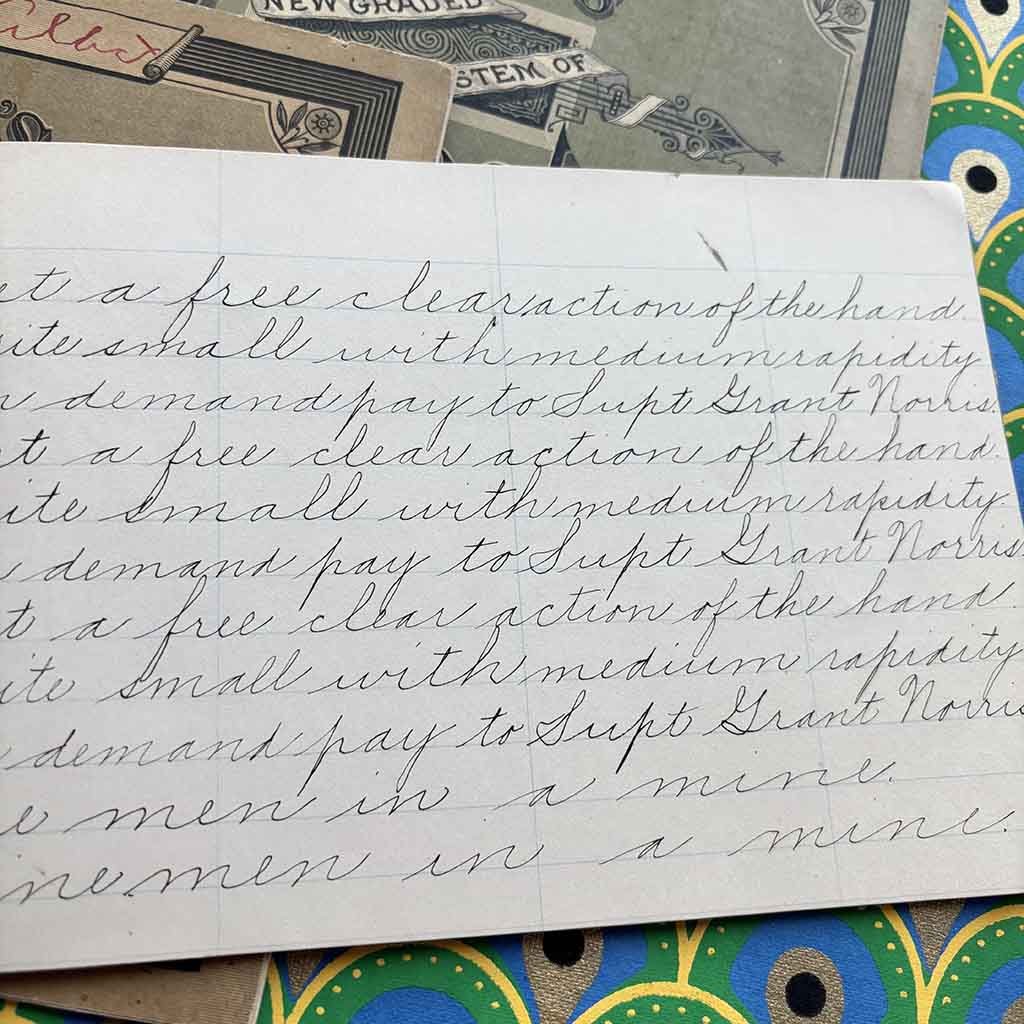 NEW GRADED
STEM OF
et a free clear action of the hand.
ite small with medium rapidity
demand pay to Supt Grant Norris.
t a free clear action of the hand.
ite small with medium rapidity.
demand pay to Supt Grant Norris
t a free clear action of the hand.
ite small with medium rapidity
demand pay to Supt Grant Norris
e men in a mine.
ne men in a mine.